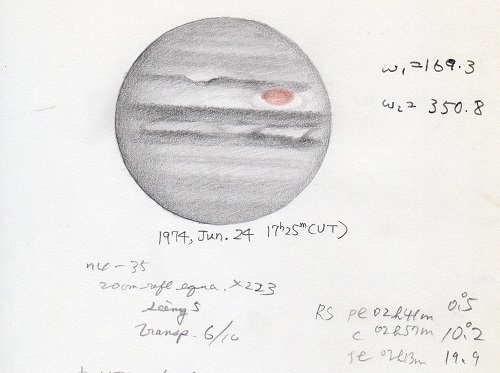 ω₁=169.3
ω₂= 350.8
1974, Jun. 24 17ʰ25ᵐ(UT)
no - 35
20cm refl equa. ×223
seeing 5
Transp. 6/10
RS pe 02h41m 0.°5
c 02h57m 10.°2
fe 03h13m 19.9